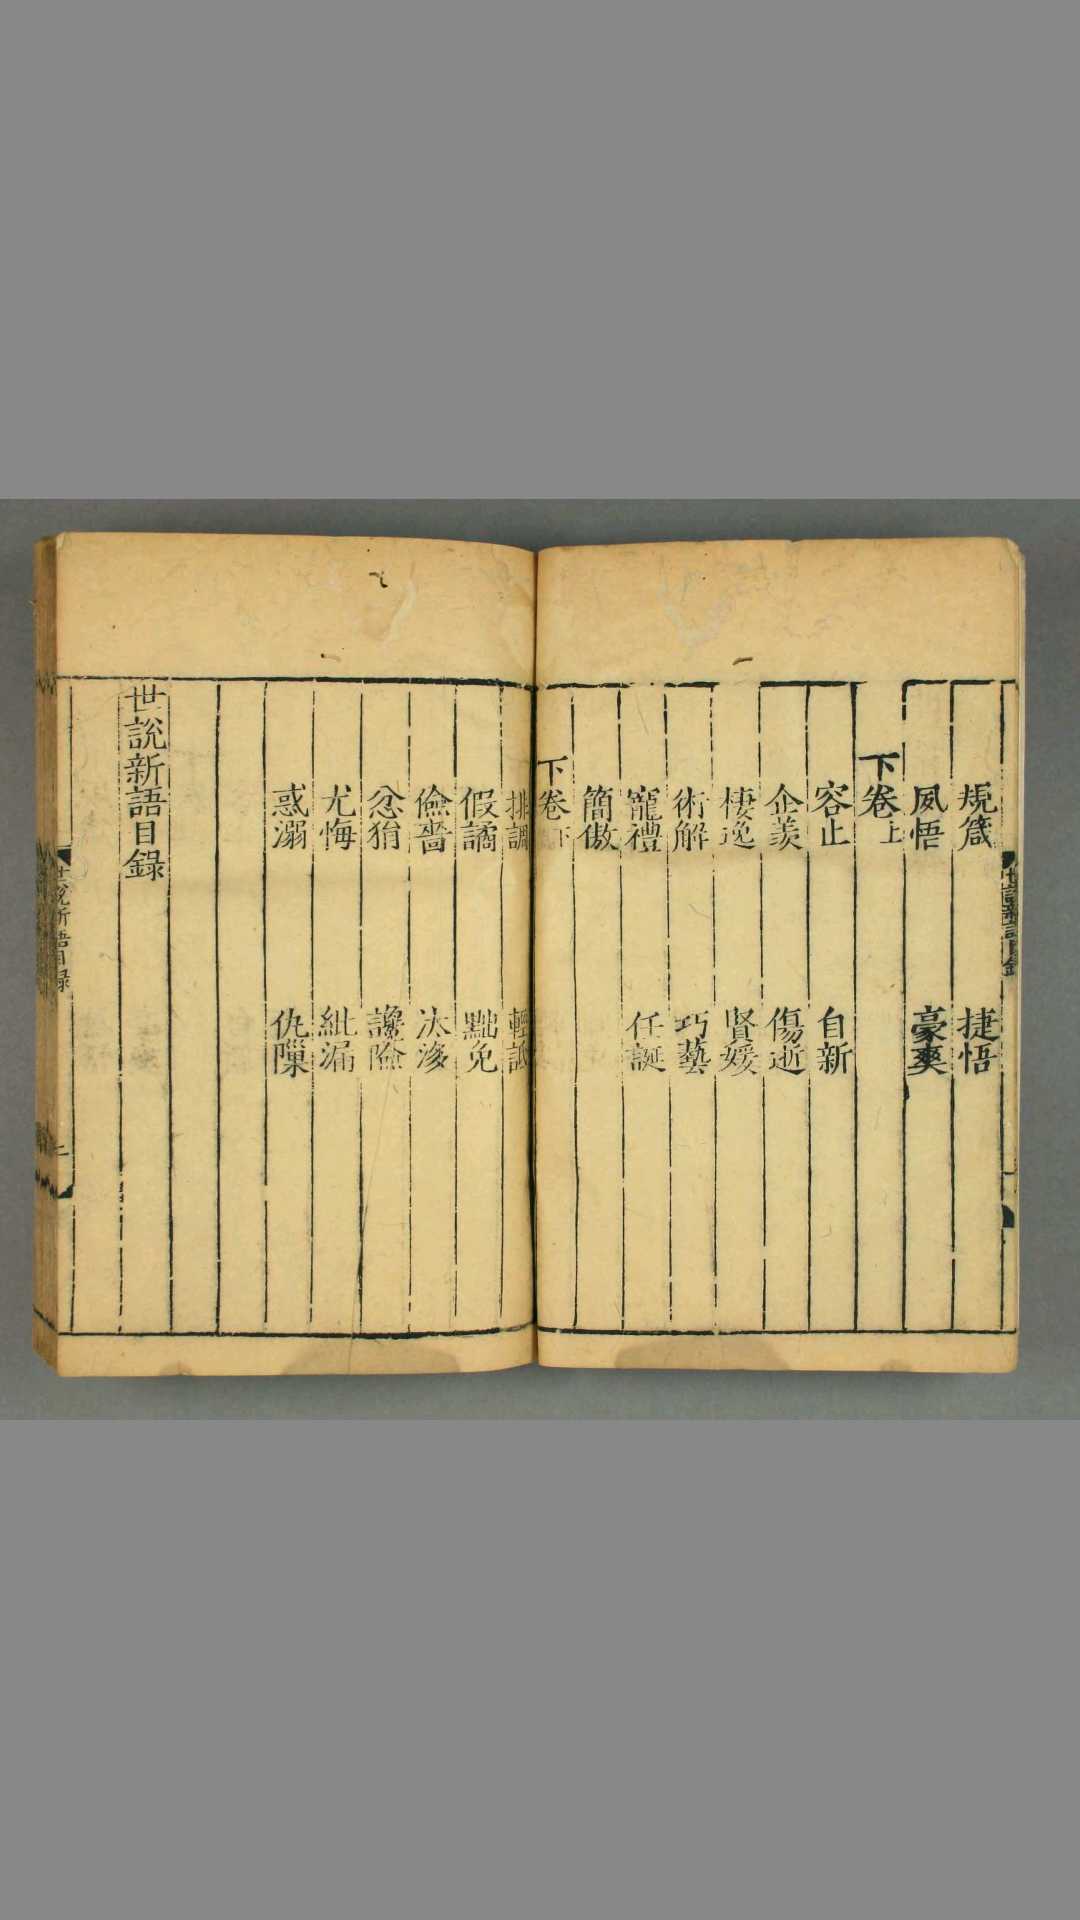 規箴 捷悟
夙悟 豪爽
下卷上
容止 自新
企羨 傷逝
棲逸 賢媛
術解 巧藝
寵禮 任誕
簡傲
下卷下
排調 輕詆
假譎 黜免
儉嗇 汰侈
忿狷 讒險
尤悔 紕漏
惑溺 仇隟
世說新語目錄
世說新語目錄
二